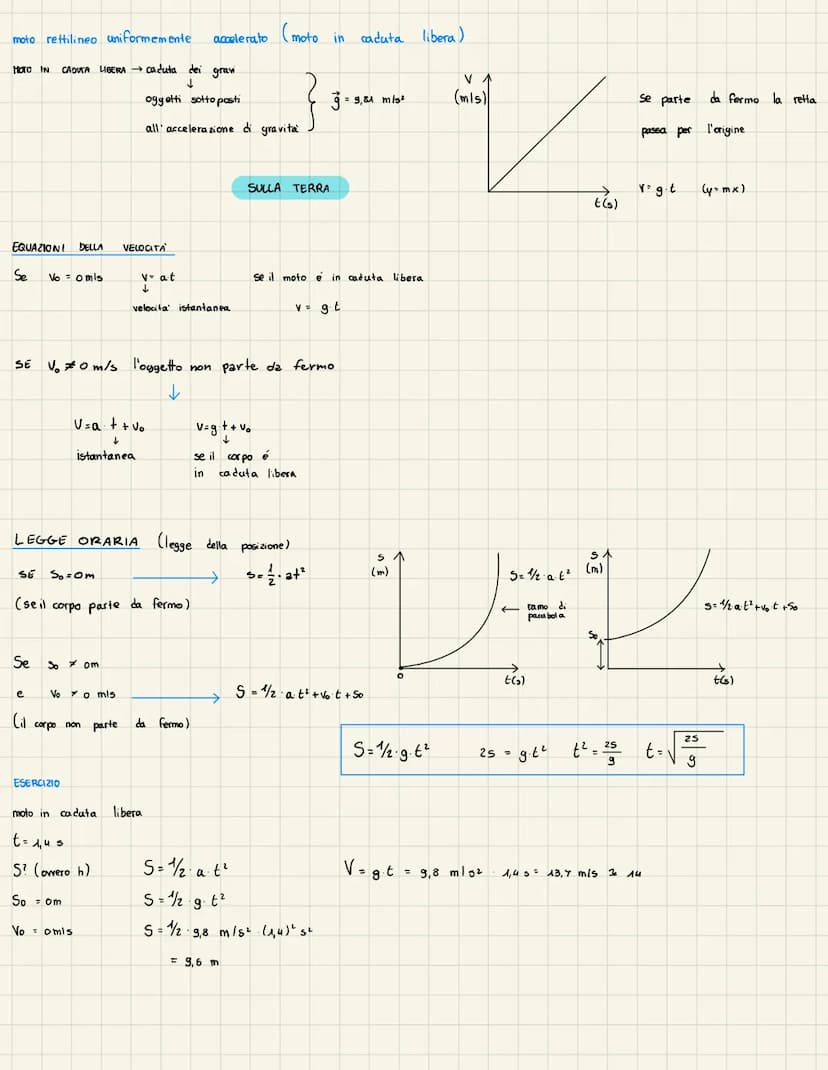 moto rettilineo uniformemente accelerato (moto in caduta libera)
MOTO IN CADUTA LIBERA → caduta dei gravi
↓
oggetti sottoposti
all'accelerazione di gravità
g = 9,81 m/s²
V
(m/s)
t(s)
se parte da fermo la retta
passa per l'origine
v = g·t (y = mx)
SULLA TERRA
EQUAZIONI DELLA VELOCITÀ
Se V₀ = 0 m/s v = at se il moto é in caduta libera
↓
velocita' istantanea v = g·t
SE V₀ ≠ 0 m/s l'oggetto non parte da fermo
↓
V = a · t + V₀ V = g·t + V₀
↓ ↓
istantanea se il corpo é
in caduta libera
LEGGE ORARIA (legge della posizione)
SE S₀ = 0m → s = 1/2 · at²
(se il corpo parte da fermo)
s
(m)
0
t(s)
S = 1/2 · a · t²
← ramo di
parabola
S
(m)
S₀
t(s)
s = 1/2 a t² + V₀ t + S₀
Se S₀ ≠ 0m
e V₀ ≠ 0 m/s → S = 1/2 · a t² + V₀ · t + S₀
(il corpo non parte da fermo)
S = 1/2 · g · t² 2s = g·t² t² = 2s/g t = √2s/g
ESERCIZIO
moto in caduta libera
t = 1,4 s
S? (ovvero h) S = 1/2 · a · t² V = g·t = 9,8 m/s² · 1,4 s = 13,7 m/s ≃ 14
S₀ = 0m S = 1/2 · g · t²
V₀ = 0m/s S = 1/2 · 9,8 m/s² · (1,4)² s²
= 9,6 m